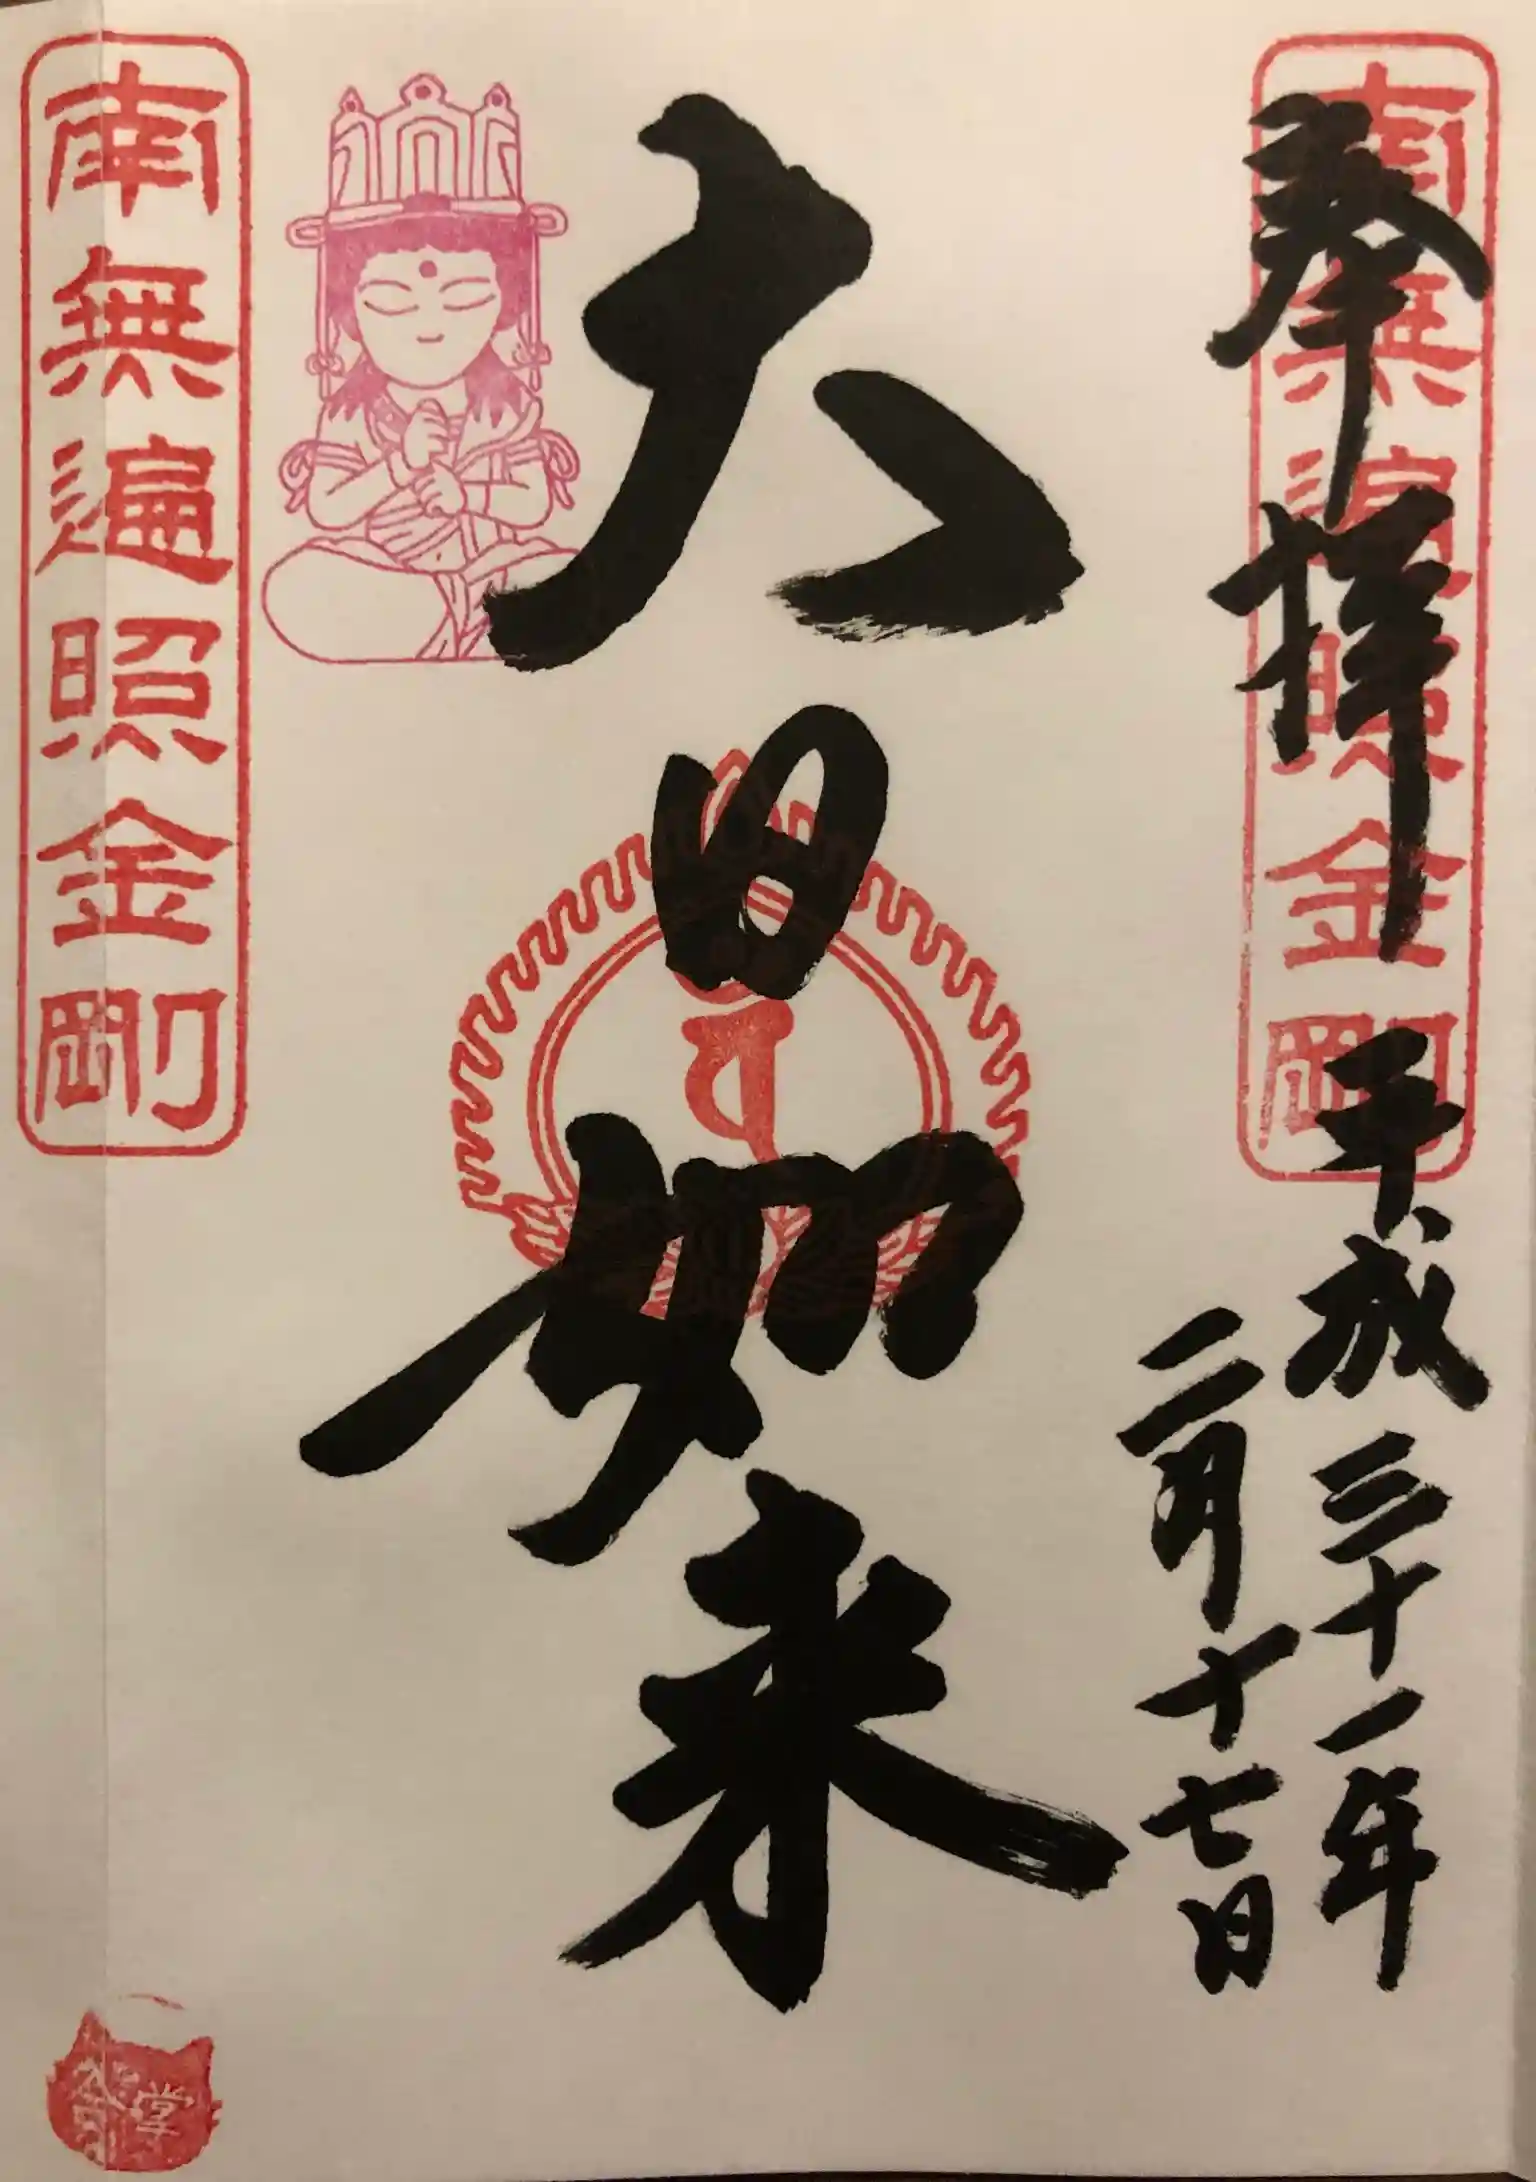 奉拝
南無遍照金剛
平成三十一年
二月十七日
大日如来
南無遍照金剛